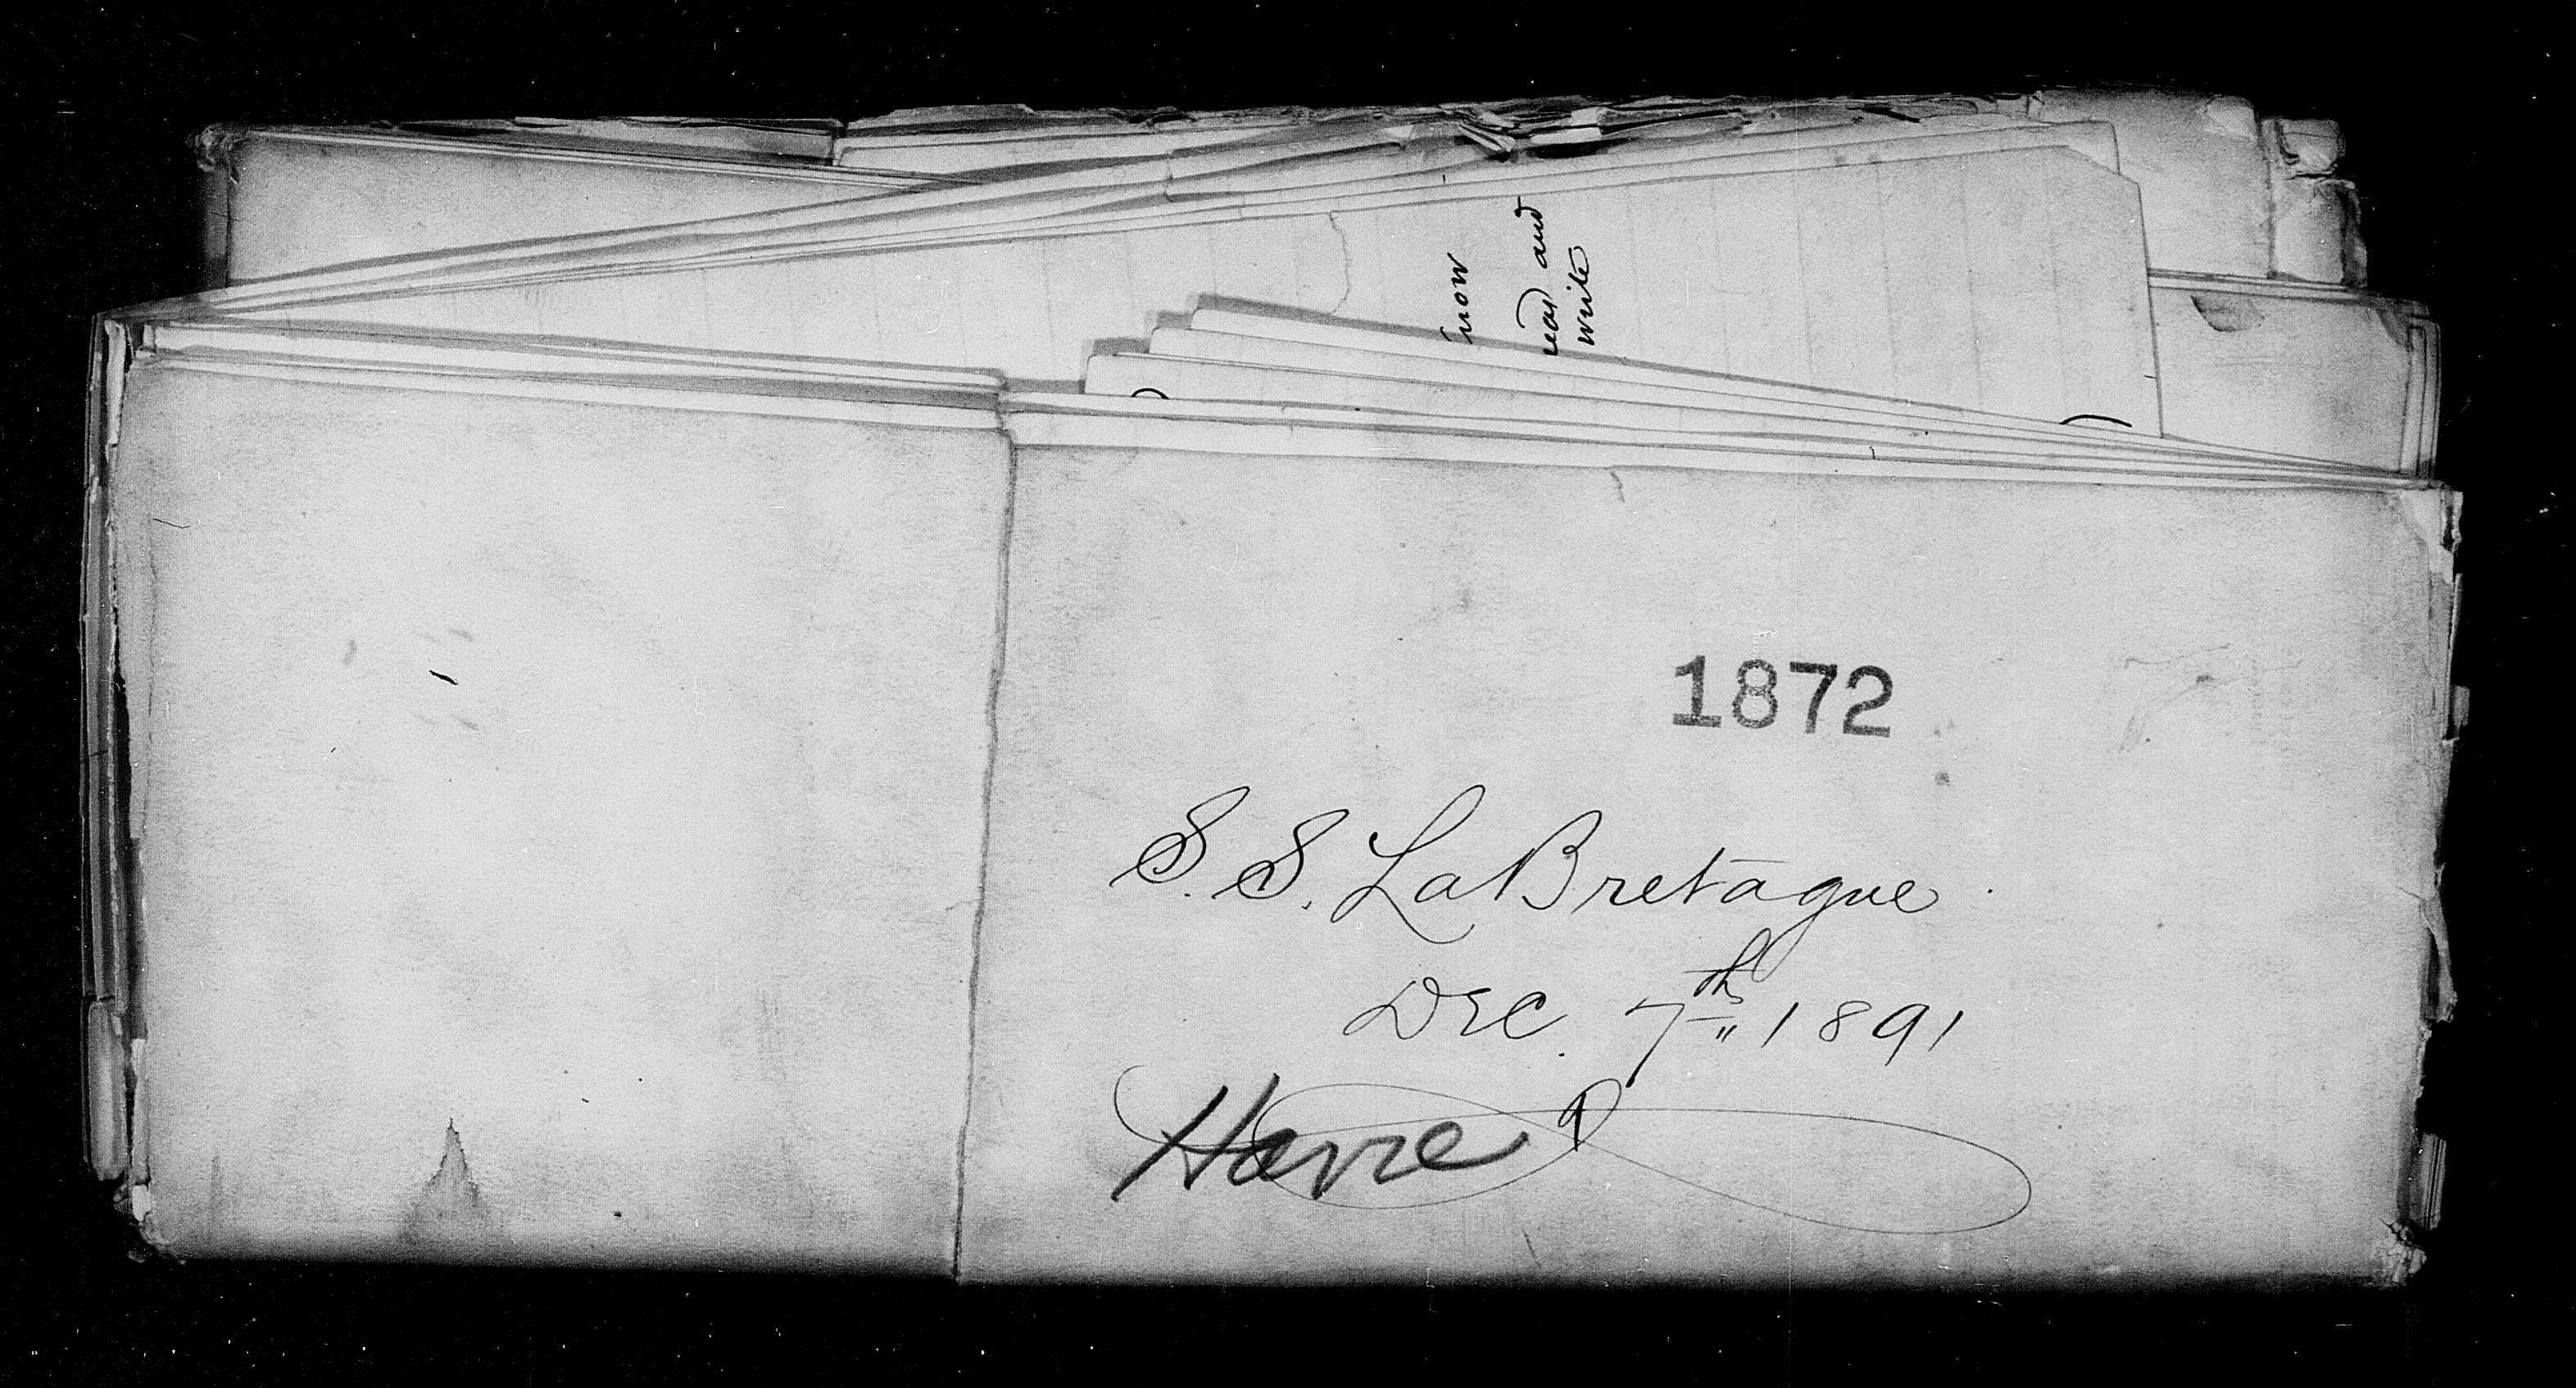 now
read and
write
1872
S. S. La Bretagne
Dec. 7th 1891
Havre